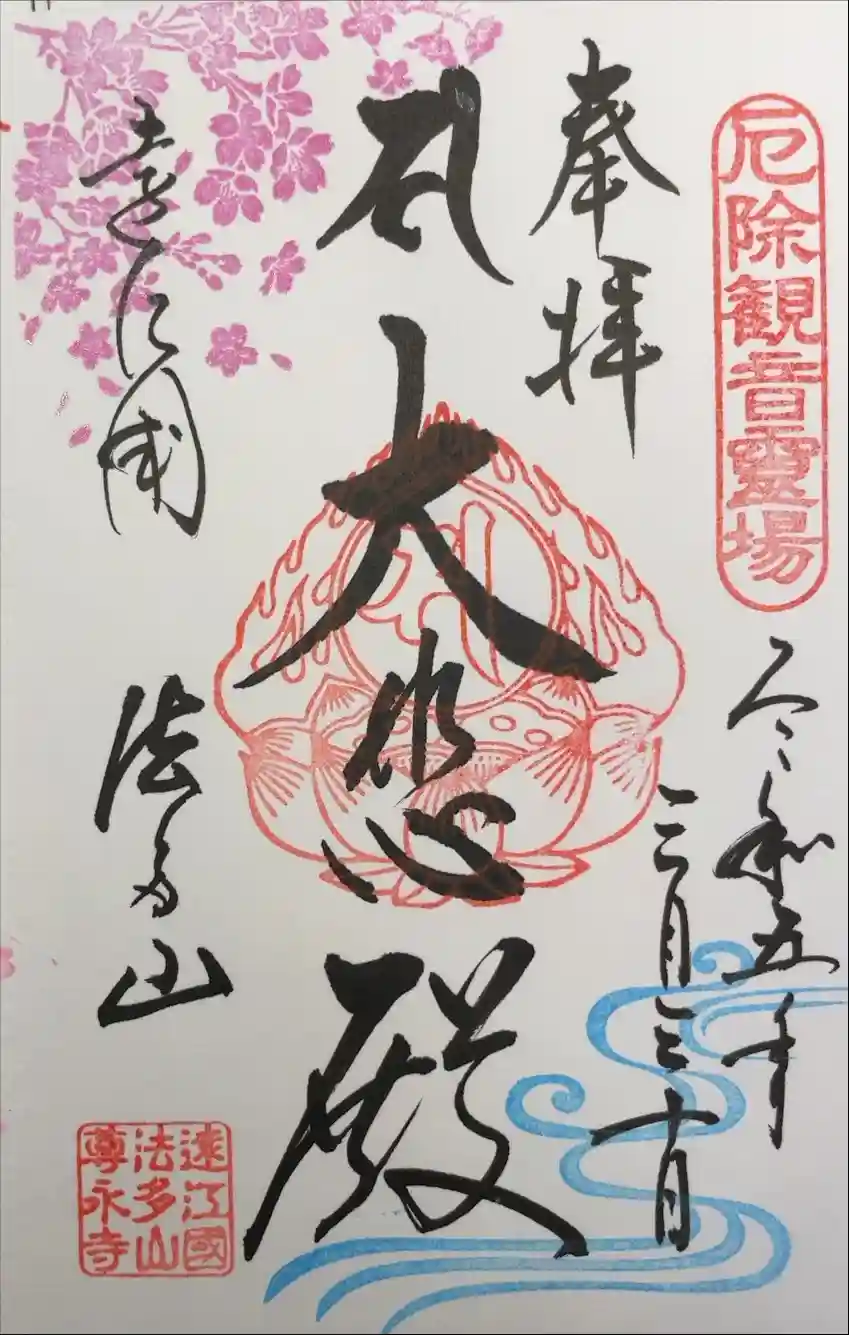 厄除観音靈場
奉拝
令和五年
三月三十日
大悲殿
遠江國
法多山
遠江國
法多山
尊永寺